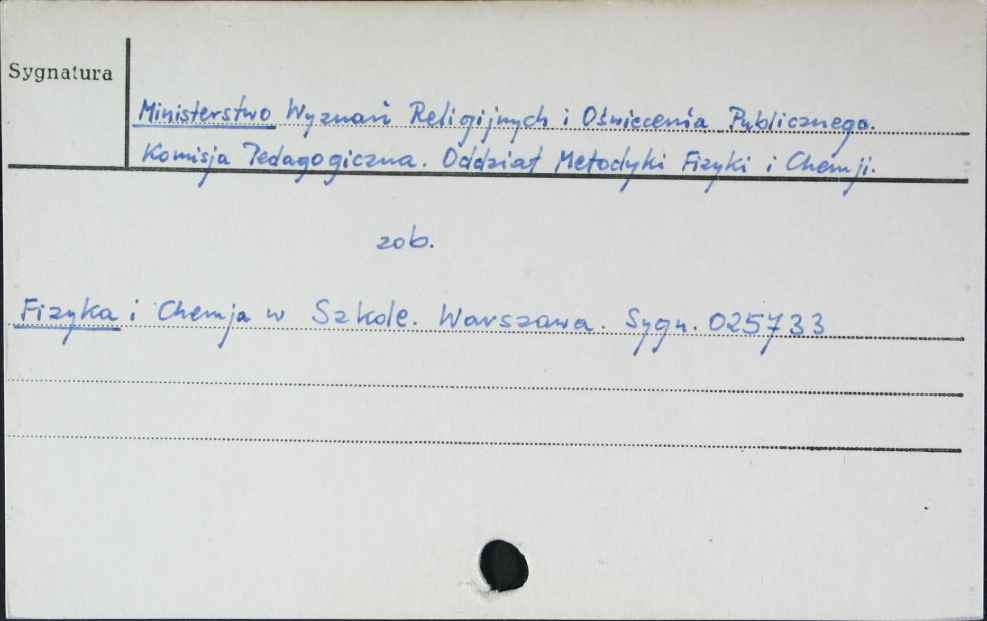 Sygnatura
Ministerstwo Wyznań Religijnych i Oświecenia Publicznego.
Komisja Pedagogiczna. Oddział Metodyki Fizyki i Chemji.
zob.
Fizyka i Chemja w Szkole. Warszawa. Sygn. 025733